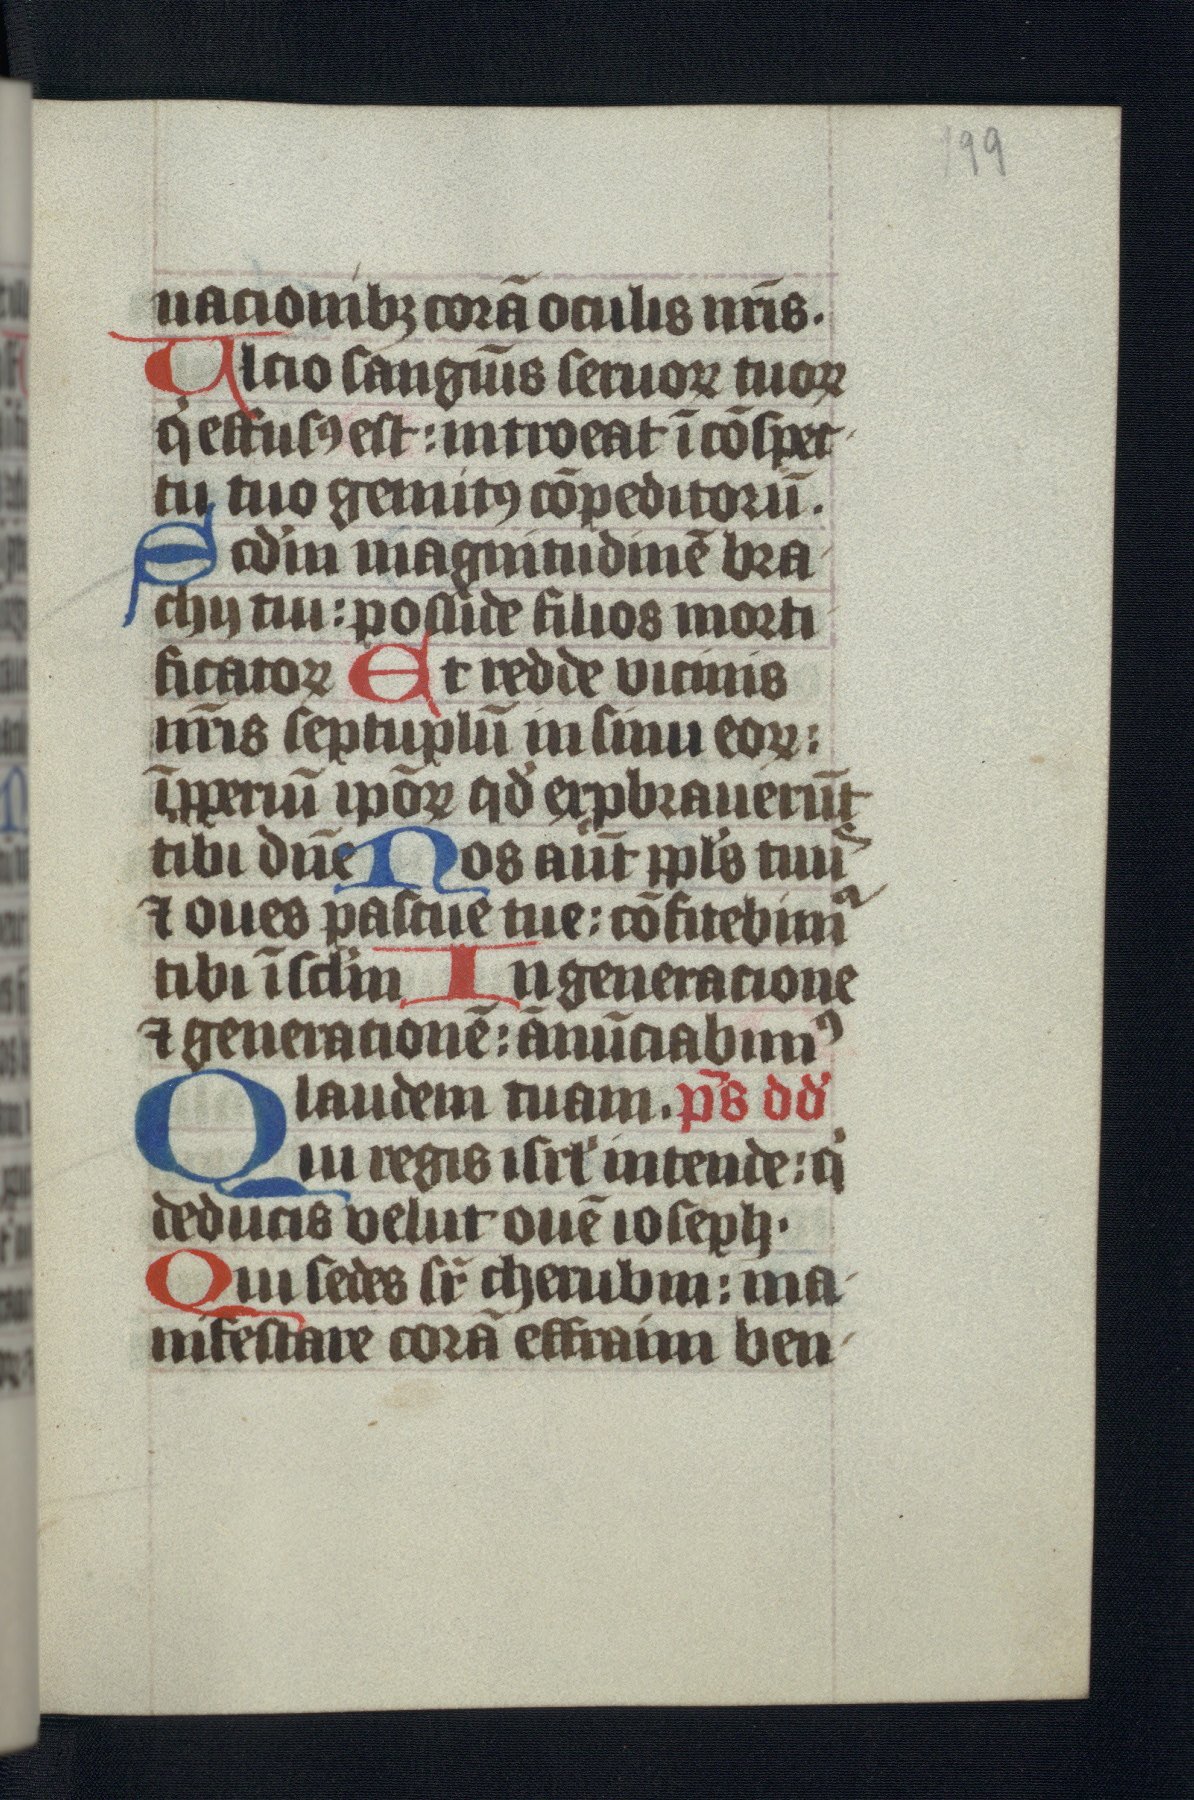 199
nacionibꝫ corā oculis nr̄is.
Ulcio sangui̅s seruoꝝ tuoꝝ
q̇ effusꝰ est: introeat ī cōspec
tu tuo gemitꝰ cōpeditorū.
Scdm̄ magnitudinē bra
chij tui: posside filios morti
ficatoꝝ Et redde vicinis
nr̄is septuplū in sinu eoꝝ:
īpperiū ip̄oꝝ qd̓ exprobrauerūt
tibi dn̄e Nos aūt ppl̓s tuus
⁊ oues pascue tue: cōfitebimꝰ
tibi ī sclm̄ In generacione
⁊ generationē: ānūciabimꝰ
laudem tuam. ps̄ dd̓
Qui regis isrl̓ intende: q̇
deducis velut ouē ioseph.
Qui sedes sr̄ cherubin: ma
nifestare corā effraim ben